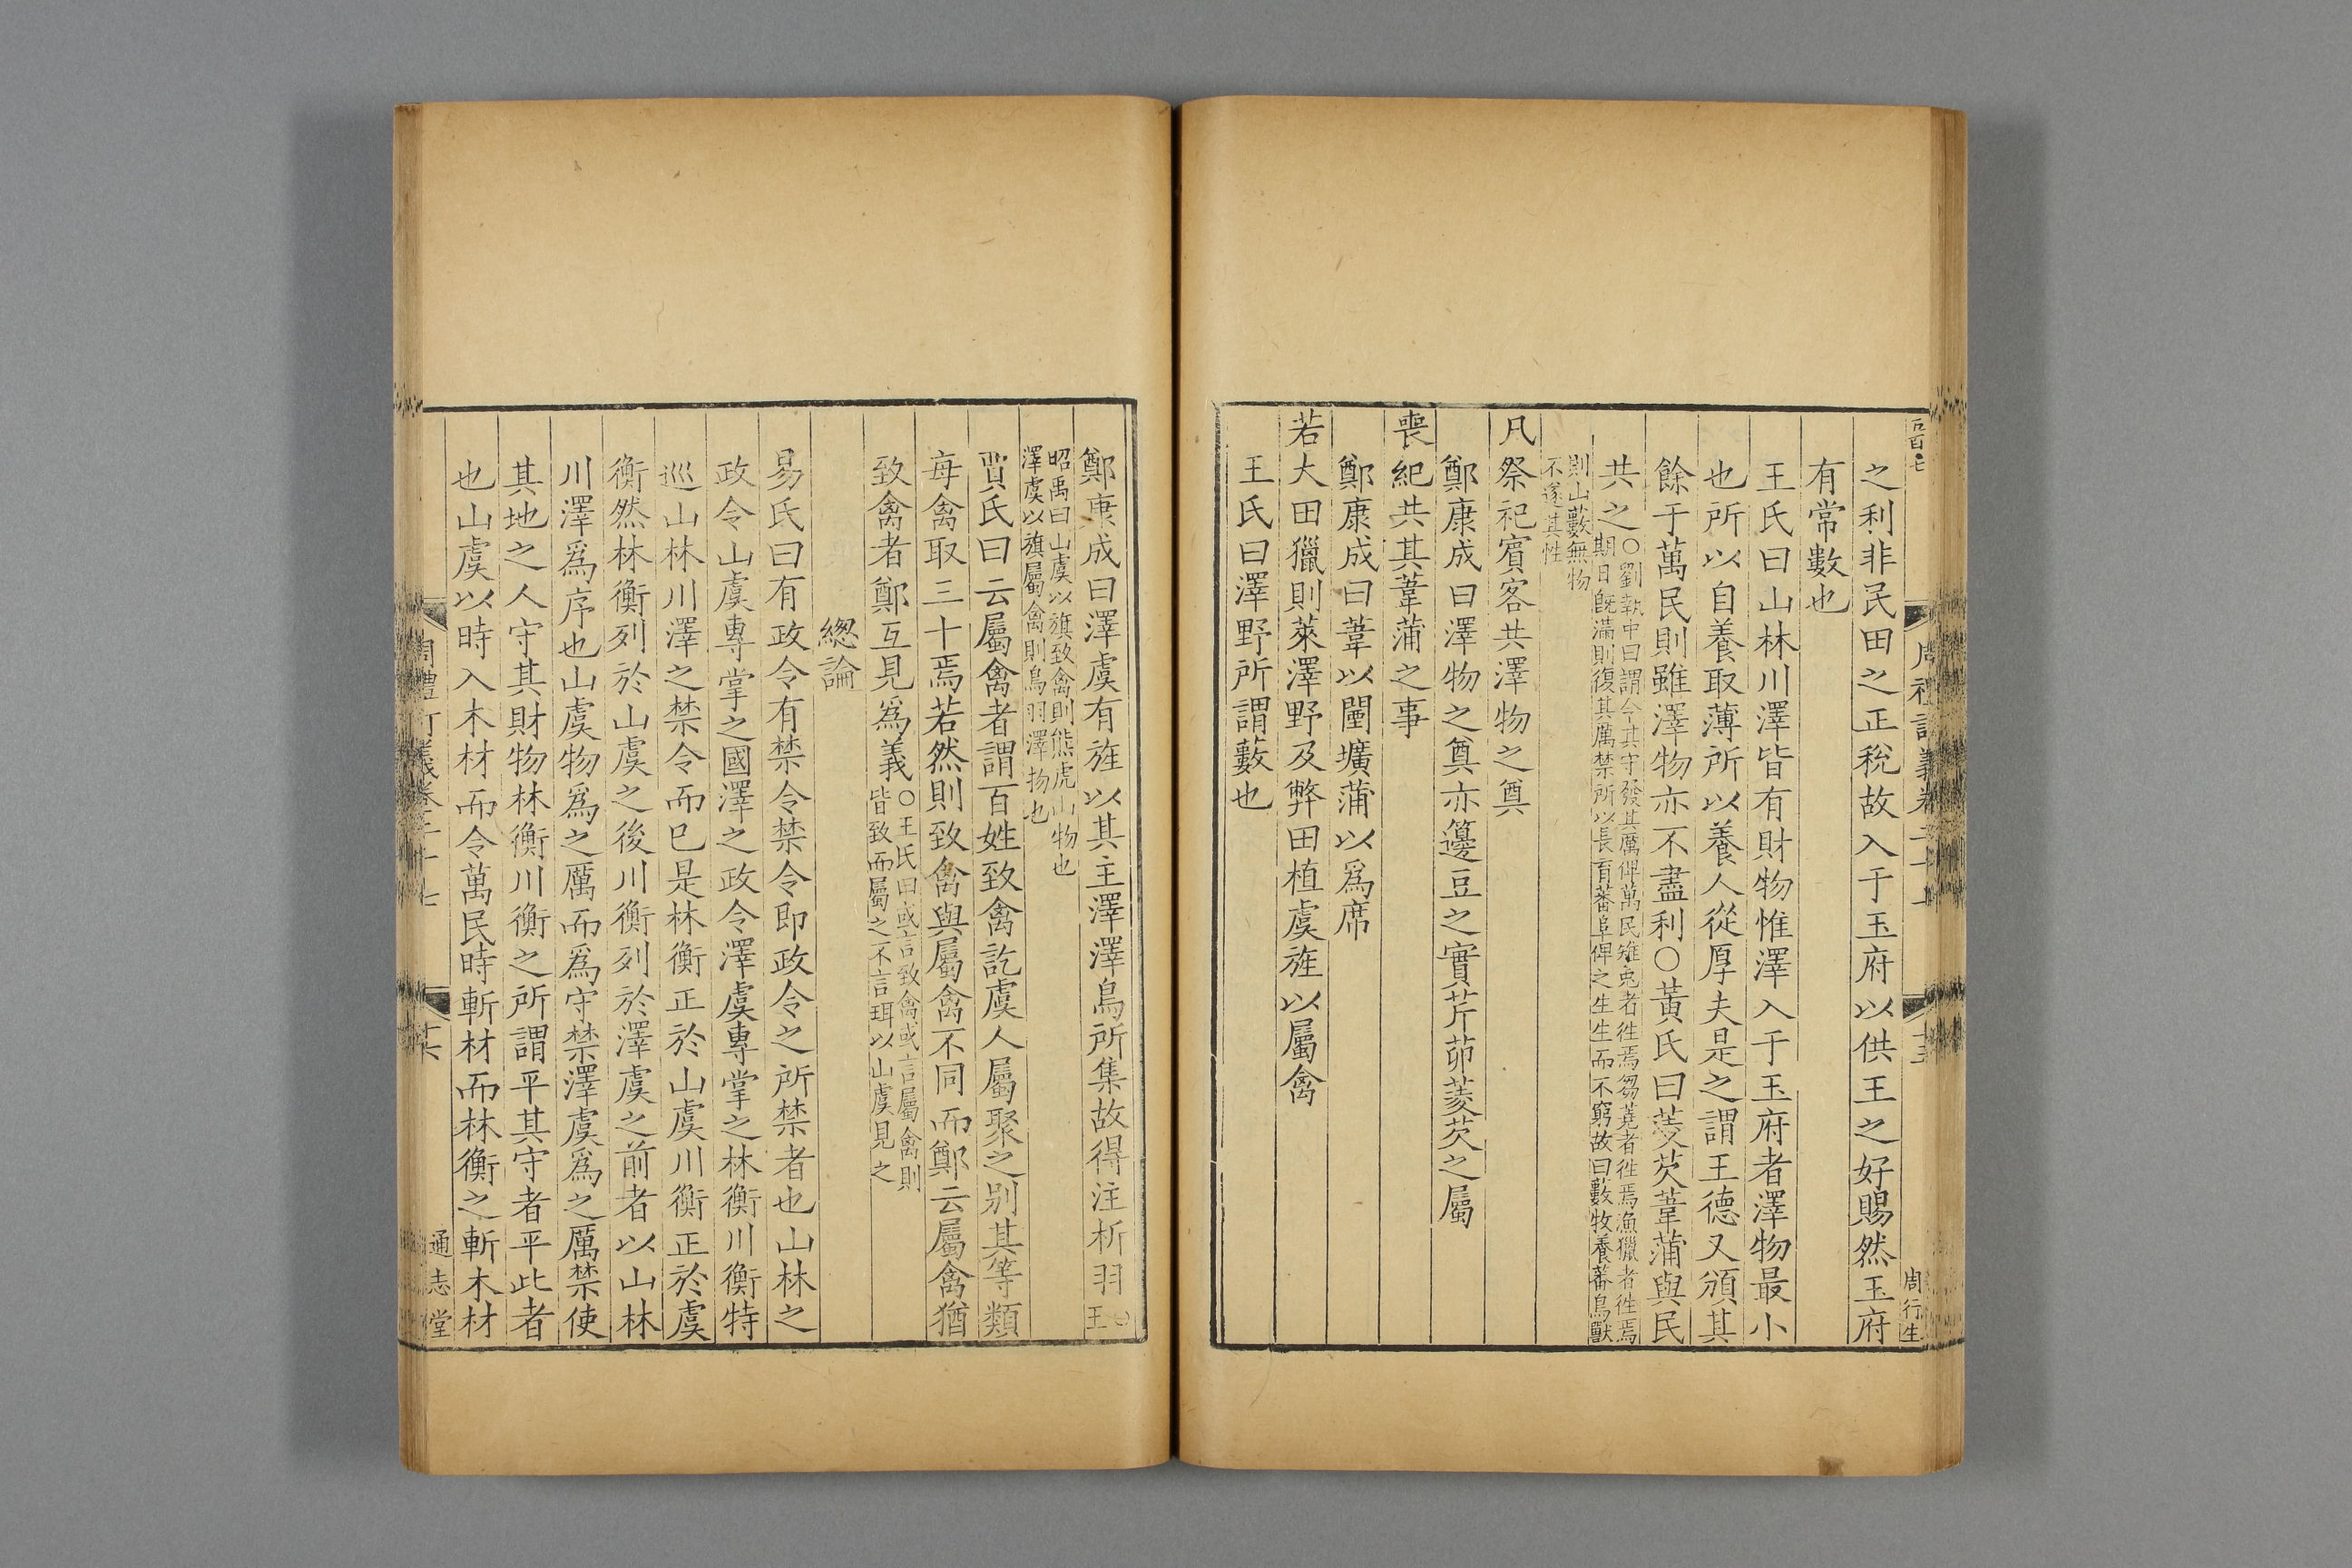 之利非民田之正稅故入于玉府以供王之好賜然玉府
有常數也
王氏曰山林川澤皆有財物惟澤入于玉府者澤物最小
也所以自養取薄所以養人從厚夫是之謂王德又頒其
餘于萬民則雖澤物亦不盡利○黃氏曰芰芡葦蒲與民
共之
○劉執中曰謂令其守發其厲俾萬民雉兎者徃焉芻蕘者徃焉漁獵者徃焉
期日旣滿則復其厲禁所以長育蕃阜俾之生生而不窮故曰藪牧養蕃鳥獸
則山藪無物
不遂其性
凡祭祀賓客共澤物之奠
鄭康成曰澤物之奠亦籩豆之實芹茆菱芡之屬
喪紀共其葦蒲之事
鄭康成曰葦以闉壙蒲以爲席
若大田獵則萊澤野及弊田植虞旌以屬禽
王氏曰澤野所謂藪也
周行生
鄭康成曰澤虞有旌以其主澤澤鳥所集故得注析羽
○王
昭禹曰山虞以旗致禽則熊虎山物也
澤虞以旗屬禽則鳥羽澤物也
賈氏曰云屬禽者謂百姓致禽訖虞人屬聚之别其等類
每禽取三十焉若然則致禽與屬禽不同而鄭云屬禽猶
致禽者鄭互見爲義
○王氏曰或言致禽或言屬禽則
皆致而屬之不言珥以山虞見之
緫論
易氏曰有政令有禁令禁令即政令之所禁者也山林之
政令山虞專掌之國澤之政令澤虞專掌之林衡川衡特
巡山林川澤之禁令而已是林衡正於山虞川衡正於虞
衡然林衡列於山虞之後川衡列於澤虞之前者以山林
川澤爲序也山虞物爲之厲而爲守禁澤虞爲之厲禁使
其地之人守其財物林衡川衡之所謂平其守者平此者
也山虞以時入木材而令萬民時斬材而林衡之斬木材
通志堂